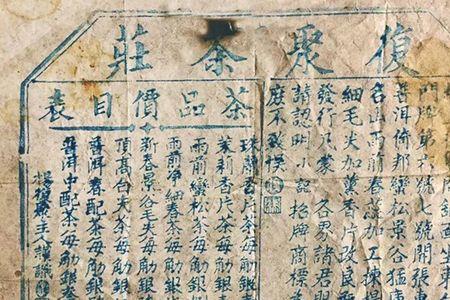 復聚茶莊
茶品價目表
門牌第六號七號開張
普洱倚邦蠻松景谷猛
名山雨前春蕊加工揀
細毛尖加薰香片改良
發行凡蒙各界諸君
請認明小號招牌商標
庶不致悞
珠蘭香片茶每觔銀
茉莉香片茶每觔銀
雨前蠻松茶每觔銀
雨前净細春茶每觔銀
新春景谷毛尖茶每觔銀
頂高台尖茶每觔銀
普洱春配茶每觔銀
普洱中配茶每觔銀
主人謹識